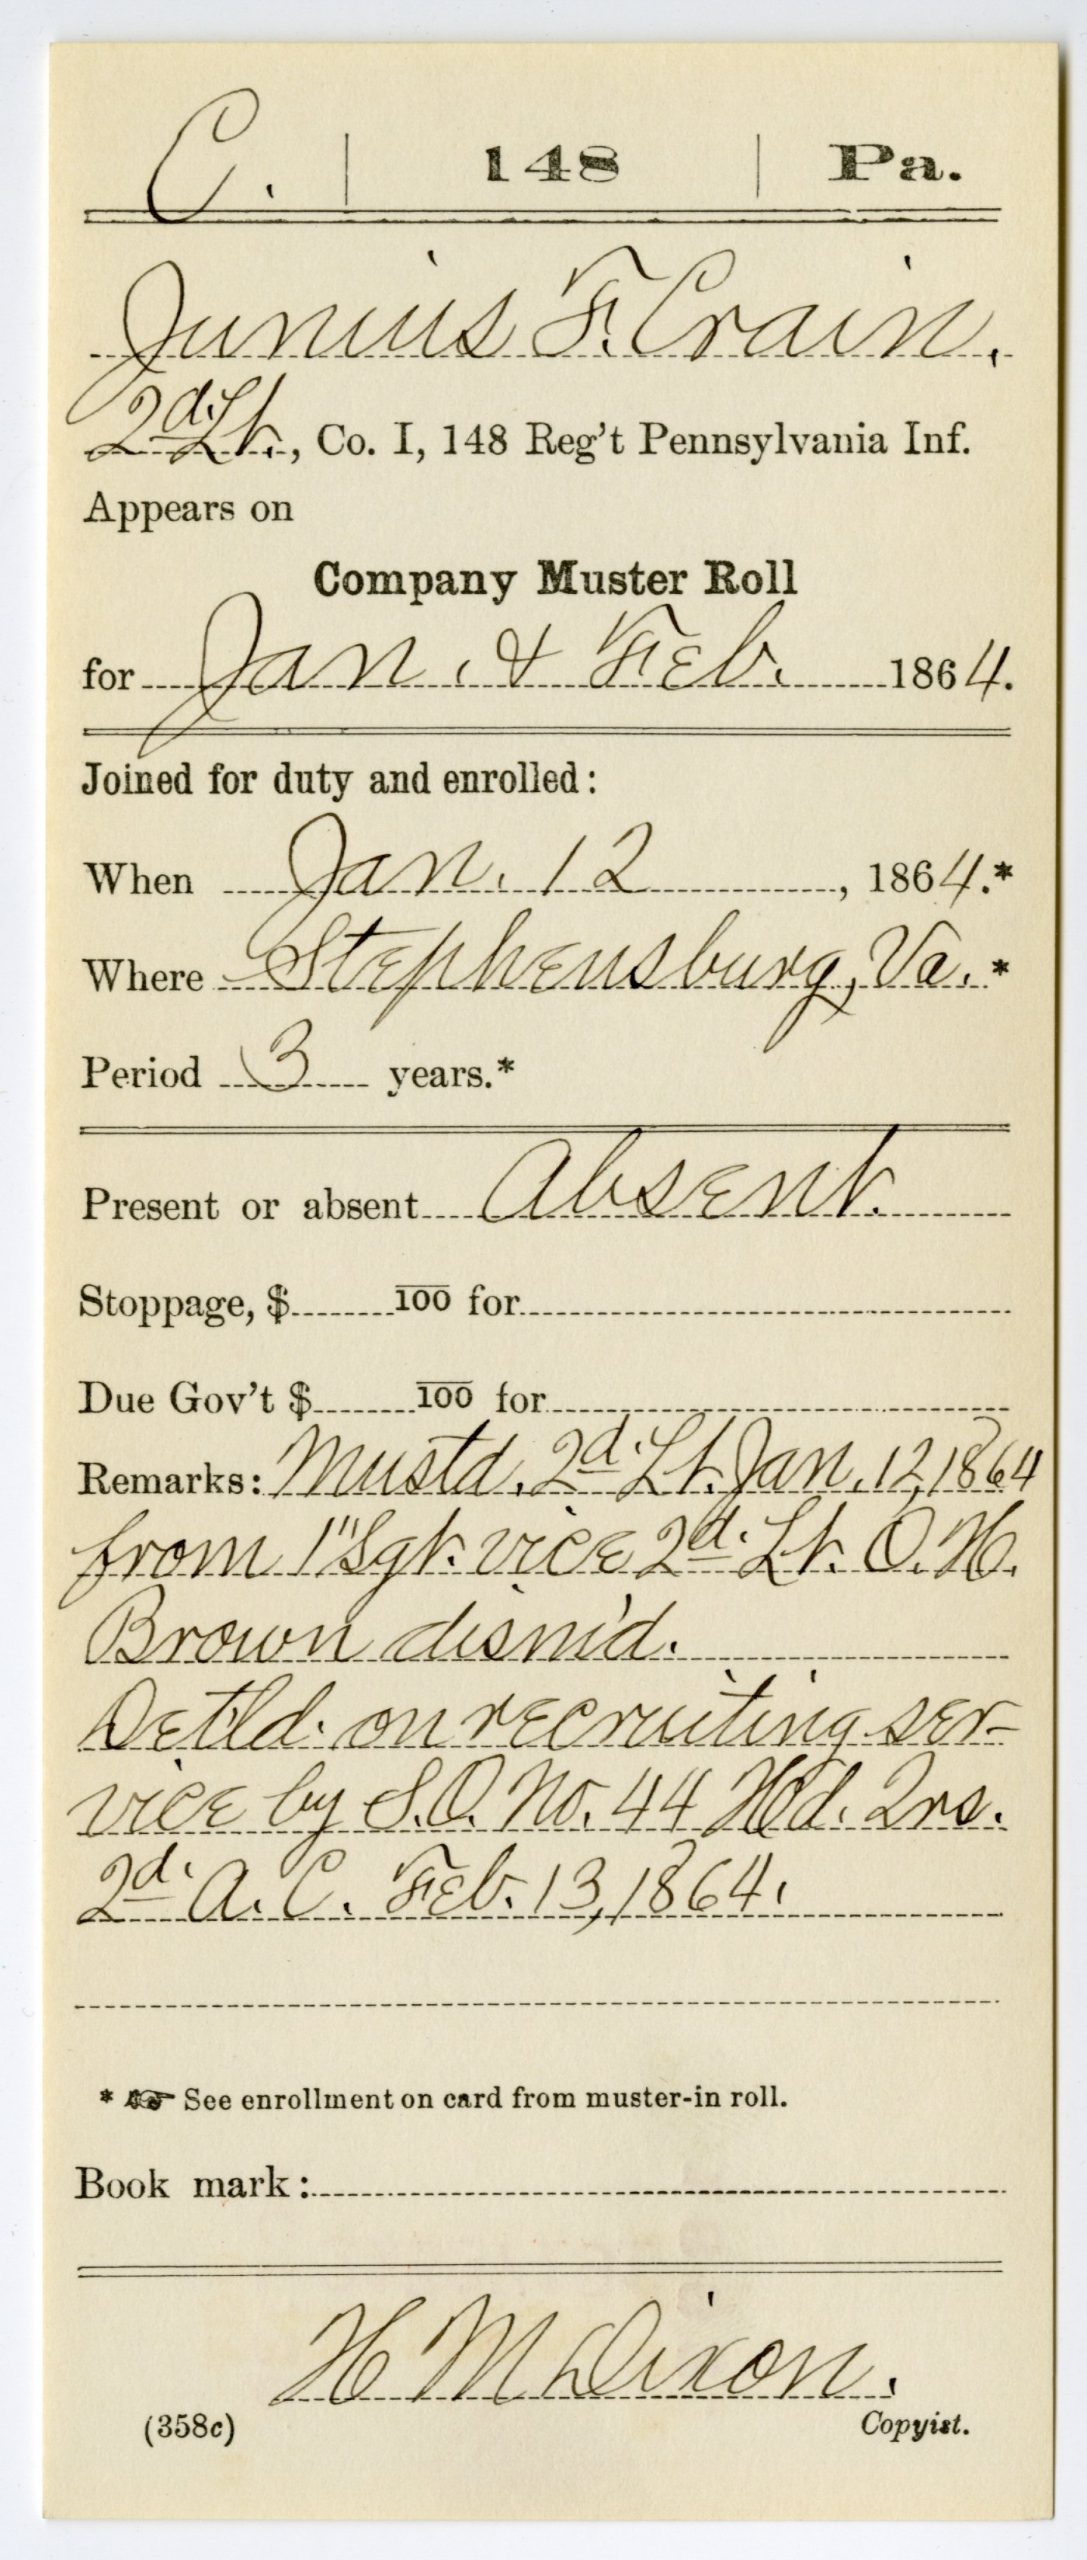 C. | 148 | Pa.
Junius F. Crain.
2d. Lt., Co. I, 148 Reg't Pennsylvania Inf.
Appears on
Company Muster Roll
for Jan. & Feb. 1864.
Joined for duty and enrolled:
When Jan. 12, 1864.*
Where Stephensburg, Va.*
Period 3 years.*
Present or absent Absent.
Stoppage, $ 100 for
Due Gov't $ 100 for
Remarks: Mustd. 2d. Lt. Jan. 12, 1864
from 1" Sgt. vice 2d. Lt. O. H.
Brown dism'd.
Det'ld. on recruiting ser-
vice by S.O. No. 44 Hd. Qrs.
2d. A. C. Feb. 13, 1864.
* ☞ See enrollment on card from muster-in roll.
Book mark:
H M Dixon.
(358c) Copyist.